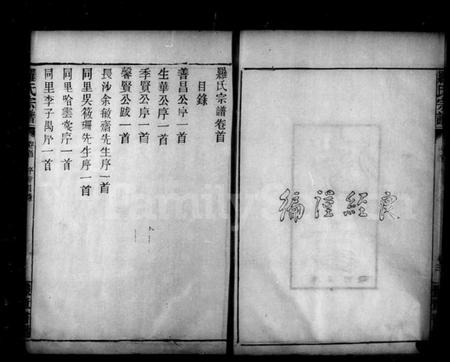 良經謹編
羅氏宗譜卷首
目錄
善昌公序一首
生華公序一首
季賢公序一首
馨賢公跋一首
長沙余敏齋先生序一首
同里吳筱珊先生序一首
同里哈雲裳序一首
同里李子禺序一首
FamilySearch